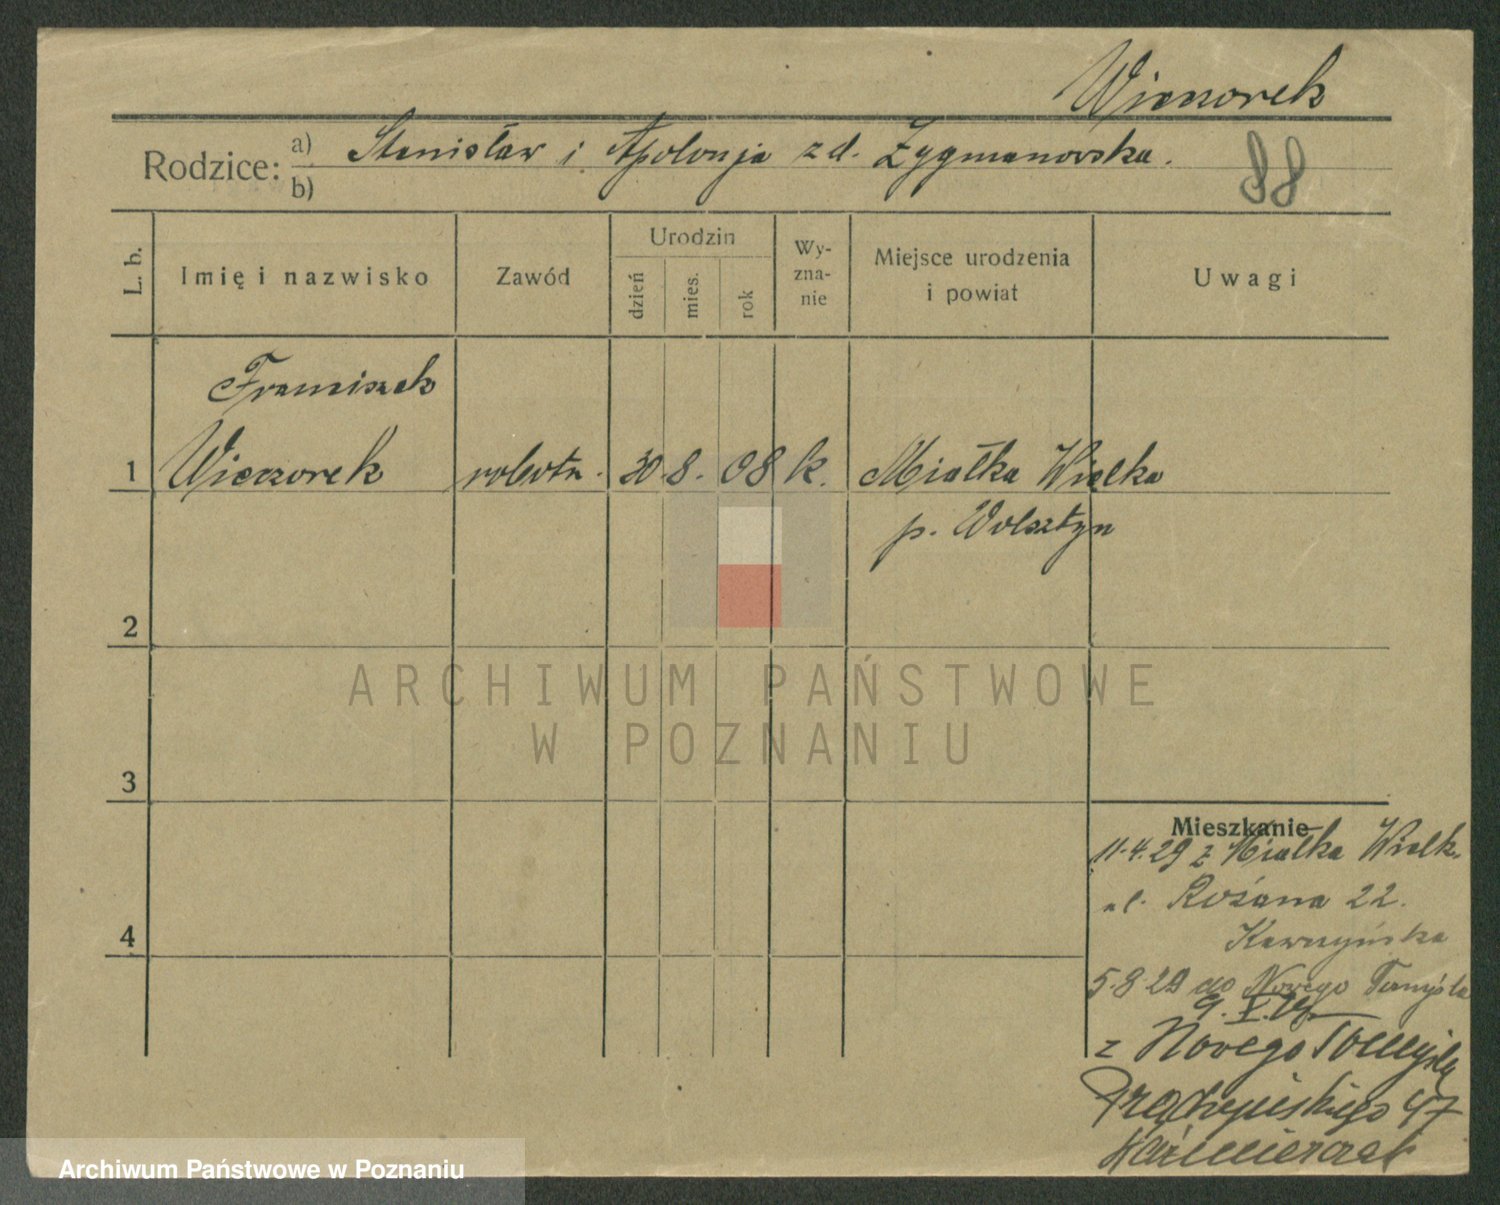 Wieczorek
Rodzice: a) Stanisław i Apolonja z d. Zygmanowska.
b)
88
L. b.
Imię i nazwisko
Zawód
Urodzin
dzień
mies.
rok
Wy-
zna-
nie
Miejsce urodzenia
i powiat
Uwagi
Franciszek
1 Wieczorek robotn. 30. 8. 08 k. Miałka Wielka
p. Wolsztyn
2
ARCHIWUM PAŃSTWOWE
W POZNANIU
3
Mieszkanie
11.4.29 z Miałka Wielk.
ul. Różana 22.
Kawczyńska
4
5.8.29 do Nowego Tomyśla
z Nowego Tomyśla
47
Kaźmierczak
Archiwum Państwowe w Poznaniu